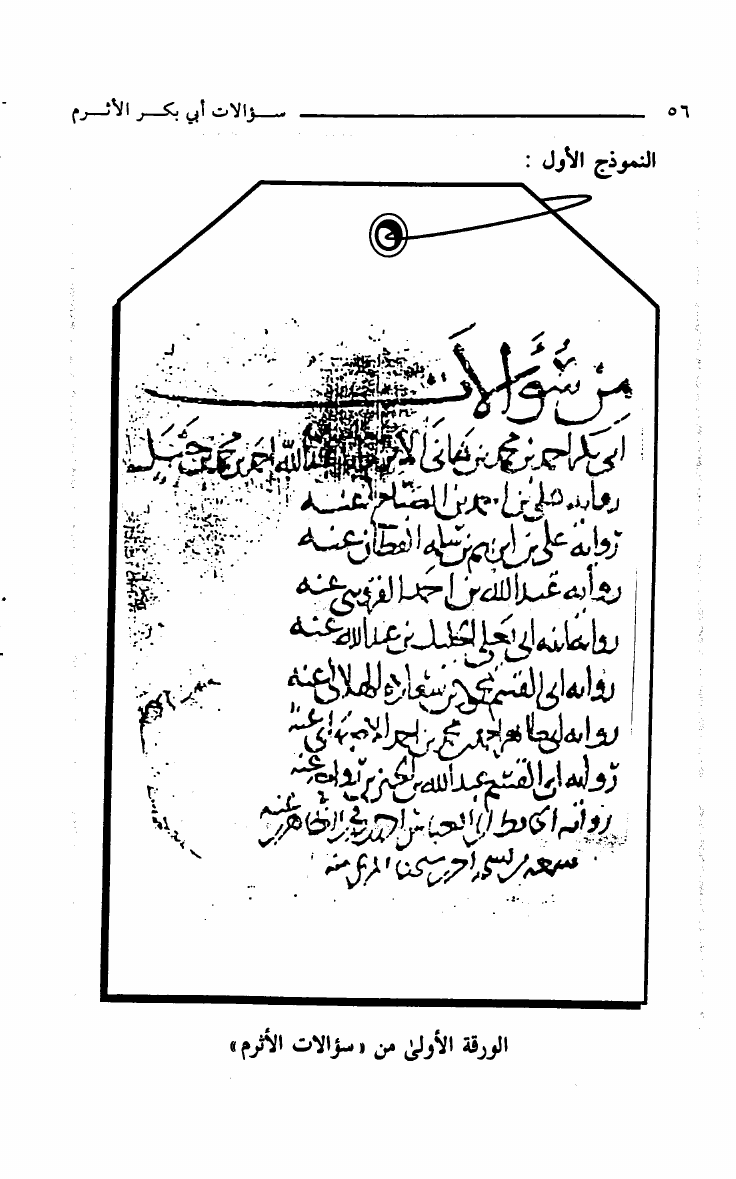 ٥٦ سـؤالات أبي بكـر الأثـرم
النموذج الأول :
من سؤالات
ابي بكر احمد بن محمد بن هانى الاثرم عبدالله احمد بن محمد بن حنبل
روايه على بن الصباح عنه
روايه على بن ابراهيم بن سلمه القطان عنه
روايه عبد الله بن احمد القزويني عنه
روايه ابى يعلى الخليل بن عبدالله عنه
روايه ابى القسم الهلالى عنه
روايه ابى طاهر احمد بن محمد بن احمد الاصبهانى عنه
روايه ابى القسم عبدالله بن الحسين بن رواحه عنه
روايه الحافظ ابى العباس احمد بن الظاهرى عنه
سمعه احمد شيخنا المزى منه
الورقة الأولىٰ من «سؤالات الأثرم»